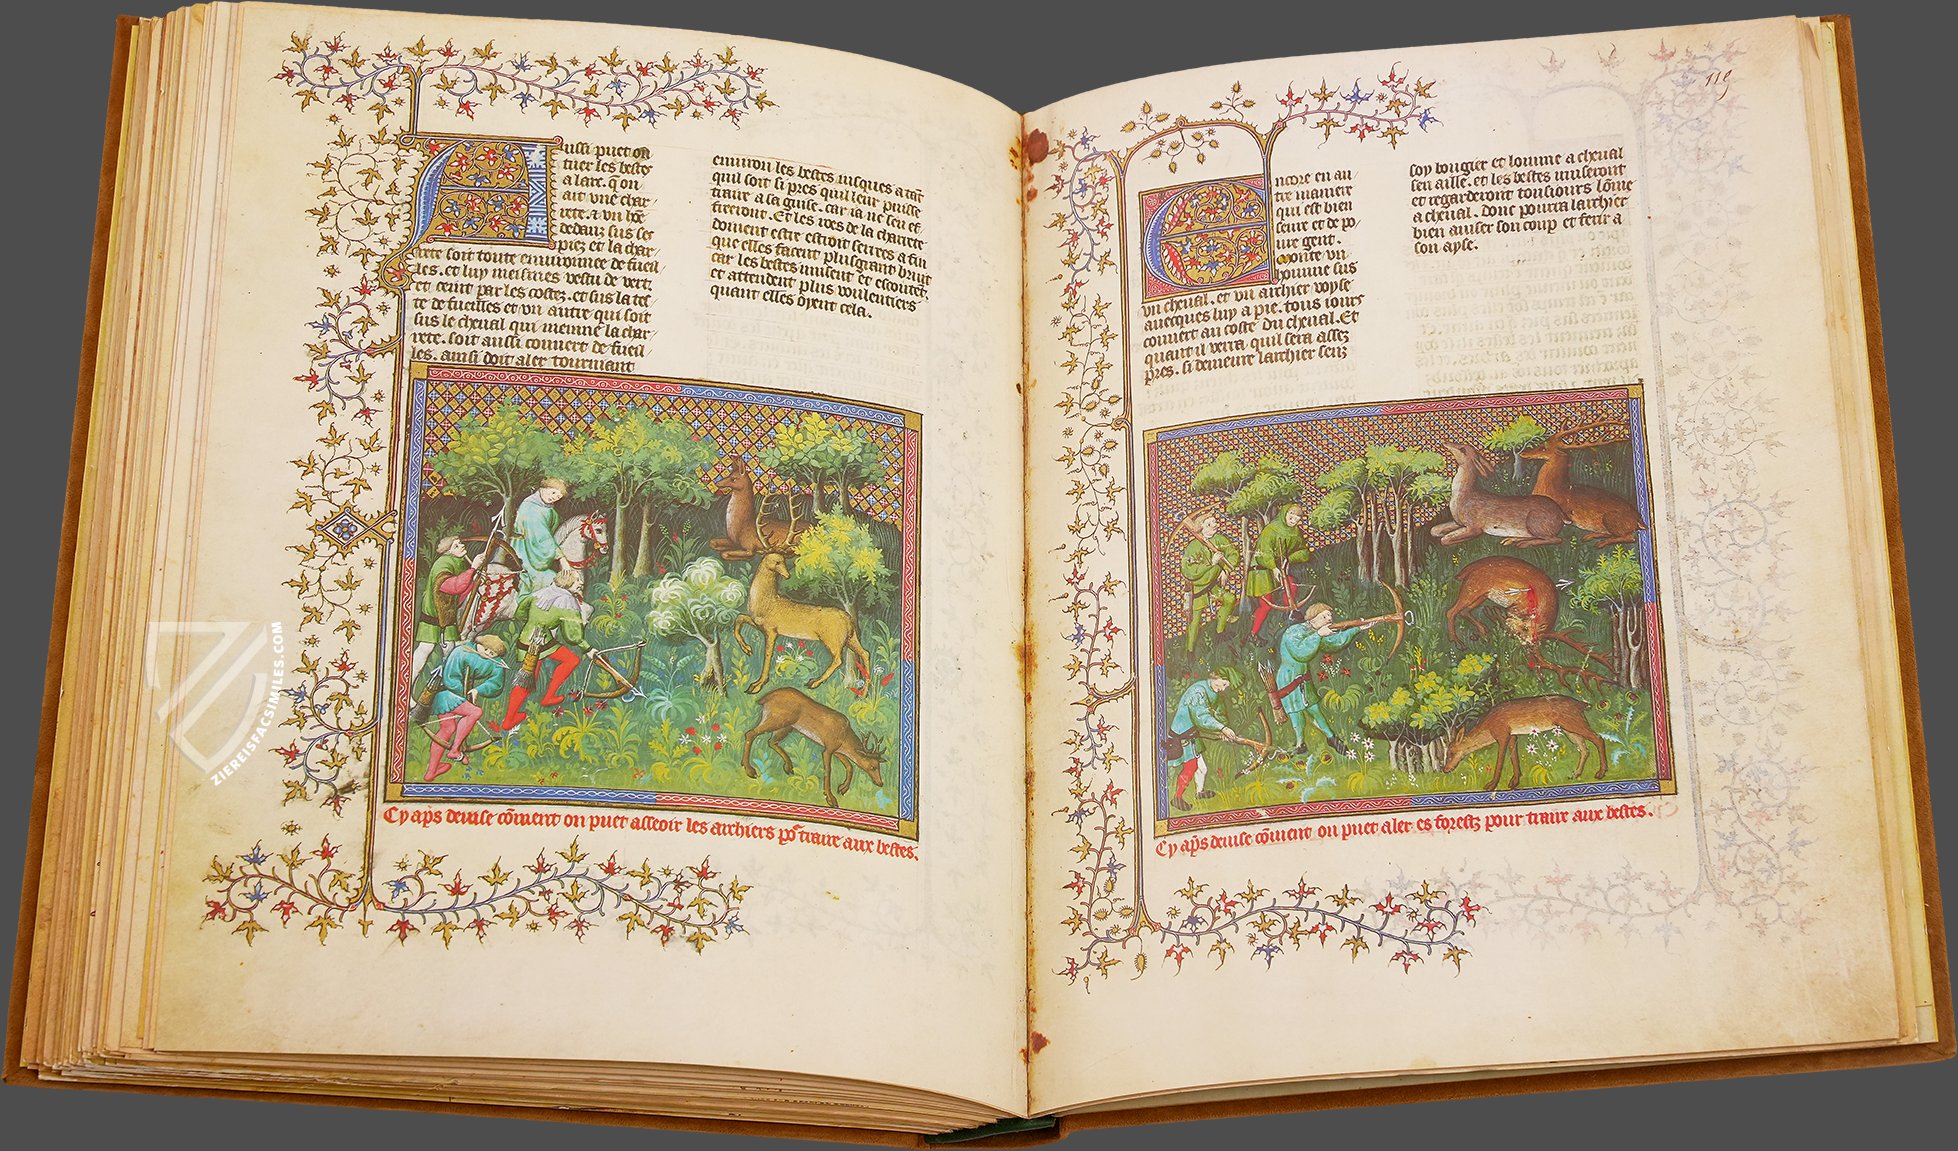 Aussi puet on
tuer les bestes
a larc. q̄ on
ait vne char
rete. ⁊ vn hōe
dedanz sus ses
piez et la char
rete soit toute enuironnee de fueil
les. et luy meismes vestu de vert
et ceint par les costez. et sus la tes
te de fueilles et vn autre qui soit
sus le cheual qui meinne la char
rete. soit aussi couuert de fueil
les. ainsi doit aler tournoiant
enuiron les bestes iusques a tāt
quil soit si pres quil leur puisse
traire a sa guise. car ia ne sen ef
freront. Et les roes de la charrete
doiuent estre
que elles facent plus grant bruit
car les bestes musent et escoutēt
et attendent plus voulentiers
quant elles oyent cela.
Cy ap̄s deuise cōment on puet asseoir les archiers po᷑ traire aux bestes.
119
Encore en au
tre maniere
qui est bien
seure et de po
ure gent.
monte vn
homme sus
vn cheual. et vn archier voyse
auecques luy a pie. tous iours
couuert au coste du cheual. Et
quant il verra quil sera assez
pres. si demeure larchier senz
soy bougier et lomme a cheual
sen aille. et les bestes museront
et regarderont tousiours lōme
a cheual. donc pourra larchier
bien auiser son coup et ferir a
son ayse.
Cy ap̄s deuise cōment on puet aler es forestz pour traire aux bestes.
ZIEREISFACSIMILES.COM